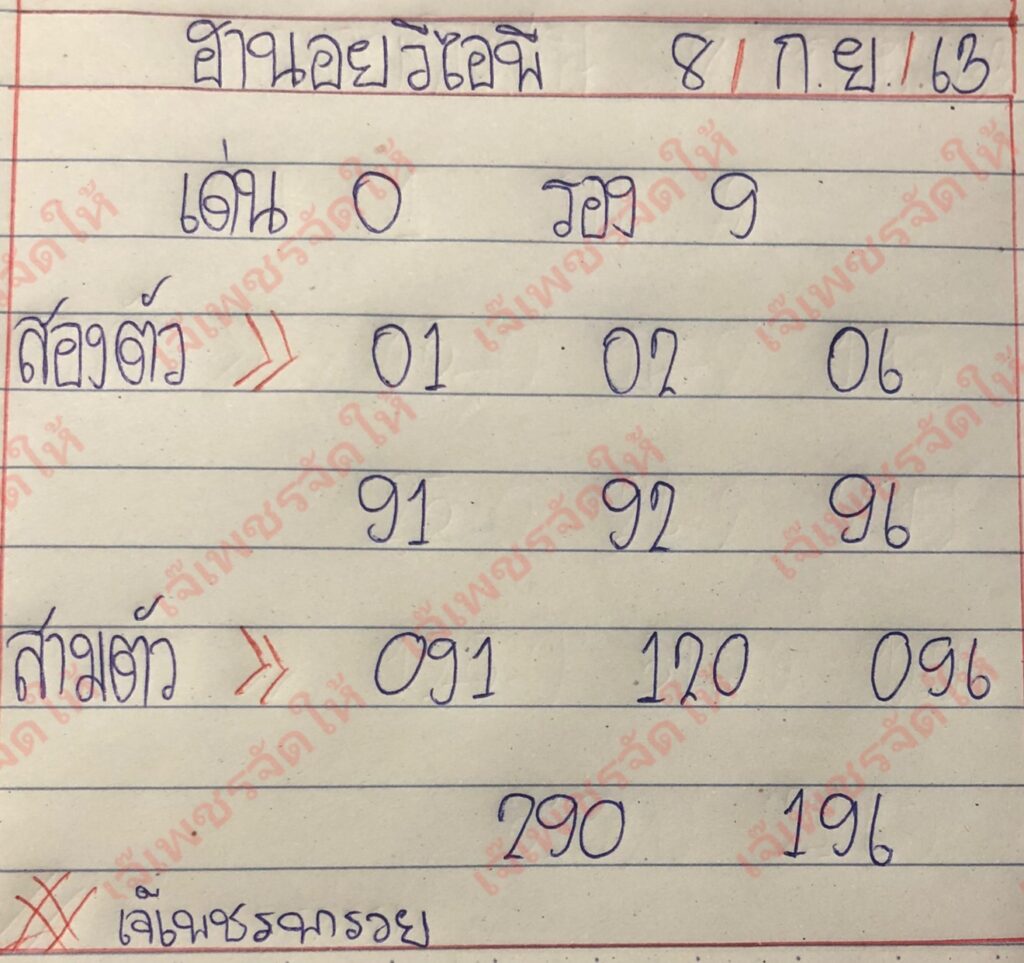 ฮานอยวีไอพี 8/ก.ย./63
เด่น 0 รอง 9
สองตัว >> 01 02 06
91 92 96
สามตัว >> 091 120 096
290 196
เจ๊เพชรพารวย
เจ๊เพชรจัดให้